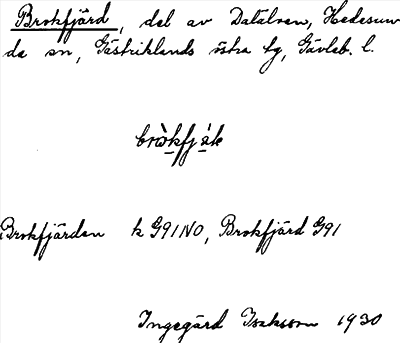 Brokfjärd, del av Dalälven, Hedesun
da sn, Gästriklands östra tg, Gävleb. l.
bròkfjá̤k
Brokfjärden k G91NO, Brokfjärd G91
Ingegärd Isaksson 1930